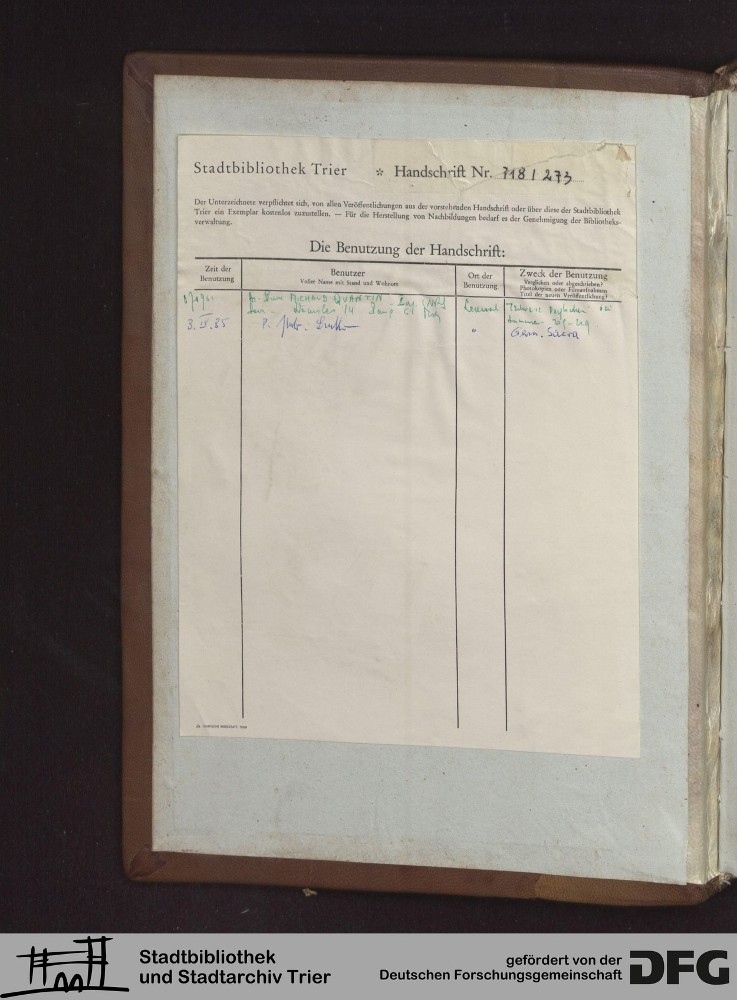 Stadtbibliothek Trier * Handschrift Nr. 718/273
Der Unterzeichnete verpflichtet sich, von allen Veröffentlichungen aus der vorstehenden Handschrift oder über diese der Stadtbibliothek
Trier ein Exemplar kostenlos zuzustellen. — Für die Herstellung von Nachbildungen bedarf es der Genehmigung der Bibliotheks-
verwaltung.
Die Benutzung der Handschrift:
Zeit der
Benutzung
Benutzer
Voller Name mit Stand und Wohnort
Ort der
Benutzung
Zweck der Benutzung
Verglichen oder abgeschrieben?
Photokopien oder Filmaufnahmen
Titel der neuen Veröffentlichung?
MICHAUD QUANTIN
3. IX. 85
P.
Stadtbibliothek
und Stadtarchiv Trier
gefördert von der
Deutschen Forschungsgemeinschaft
DFG